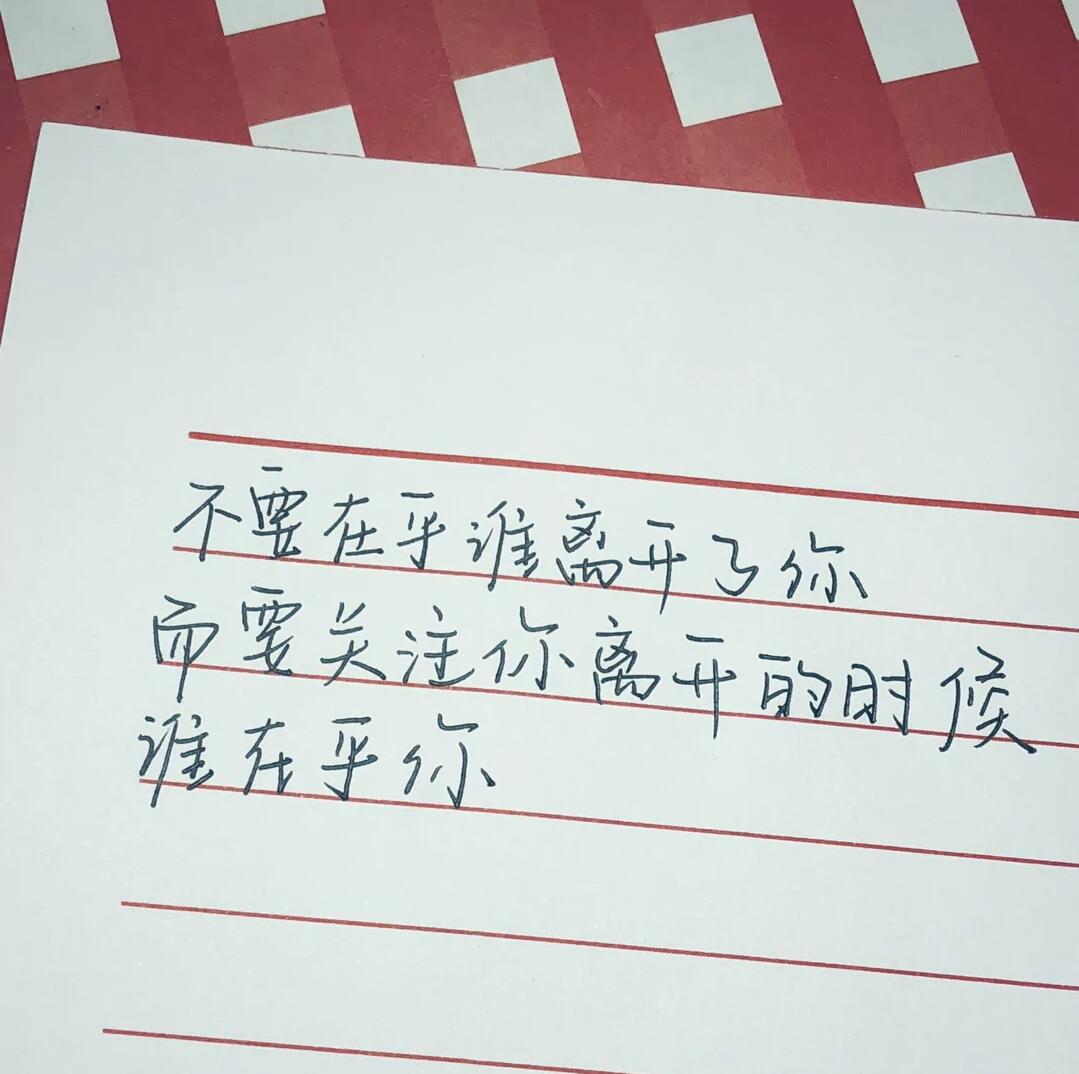 不要在乎谁离开了你
而要关注你离开的时候
谁在乎你